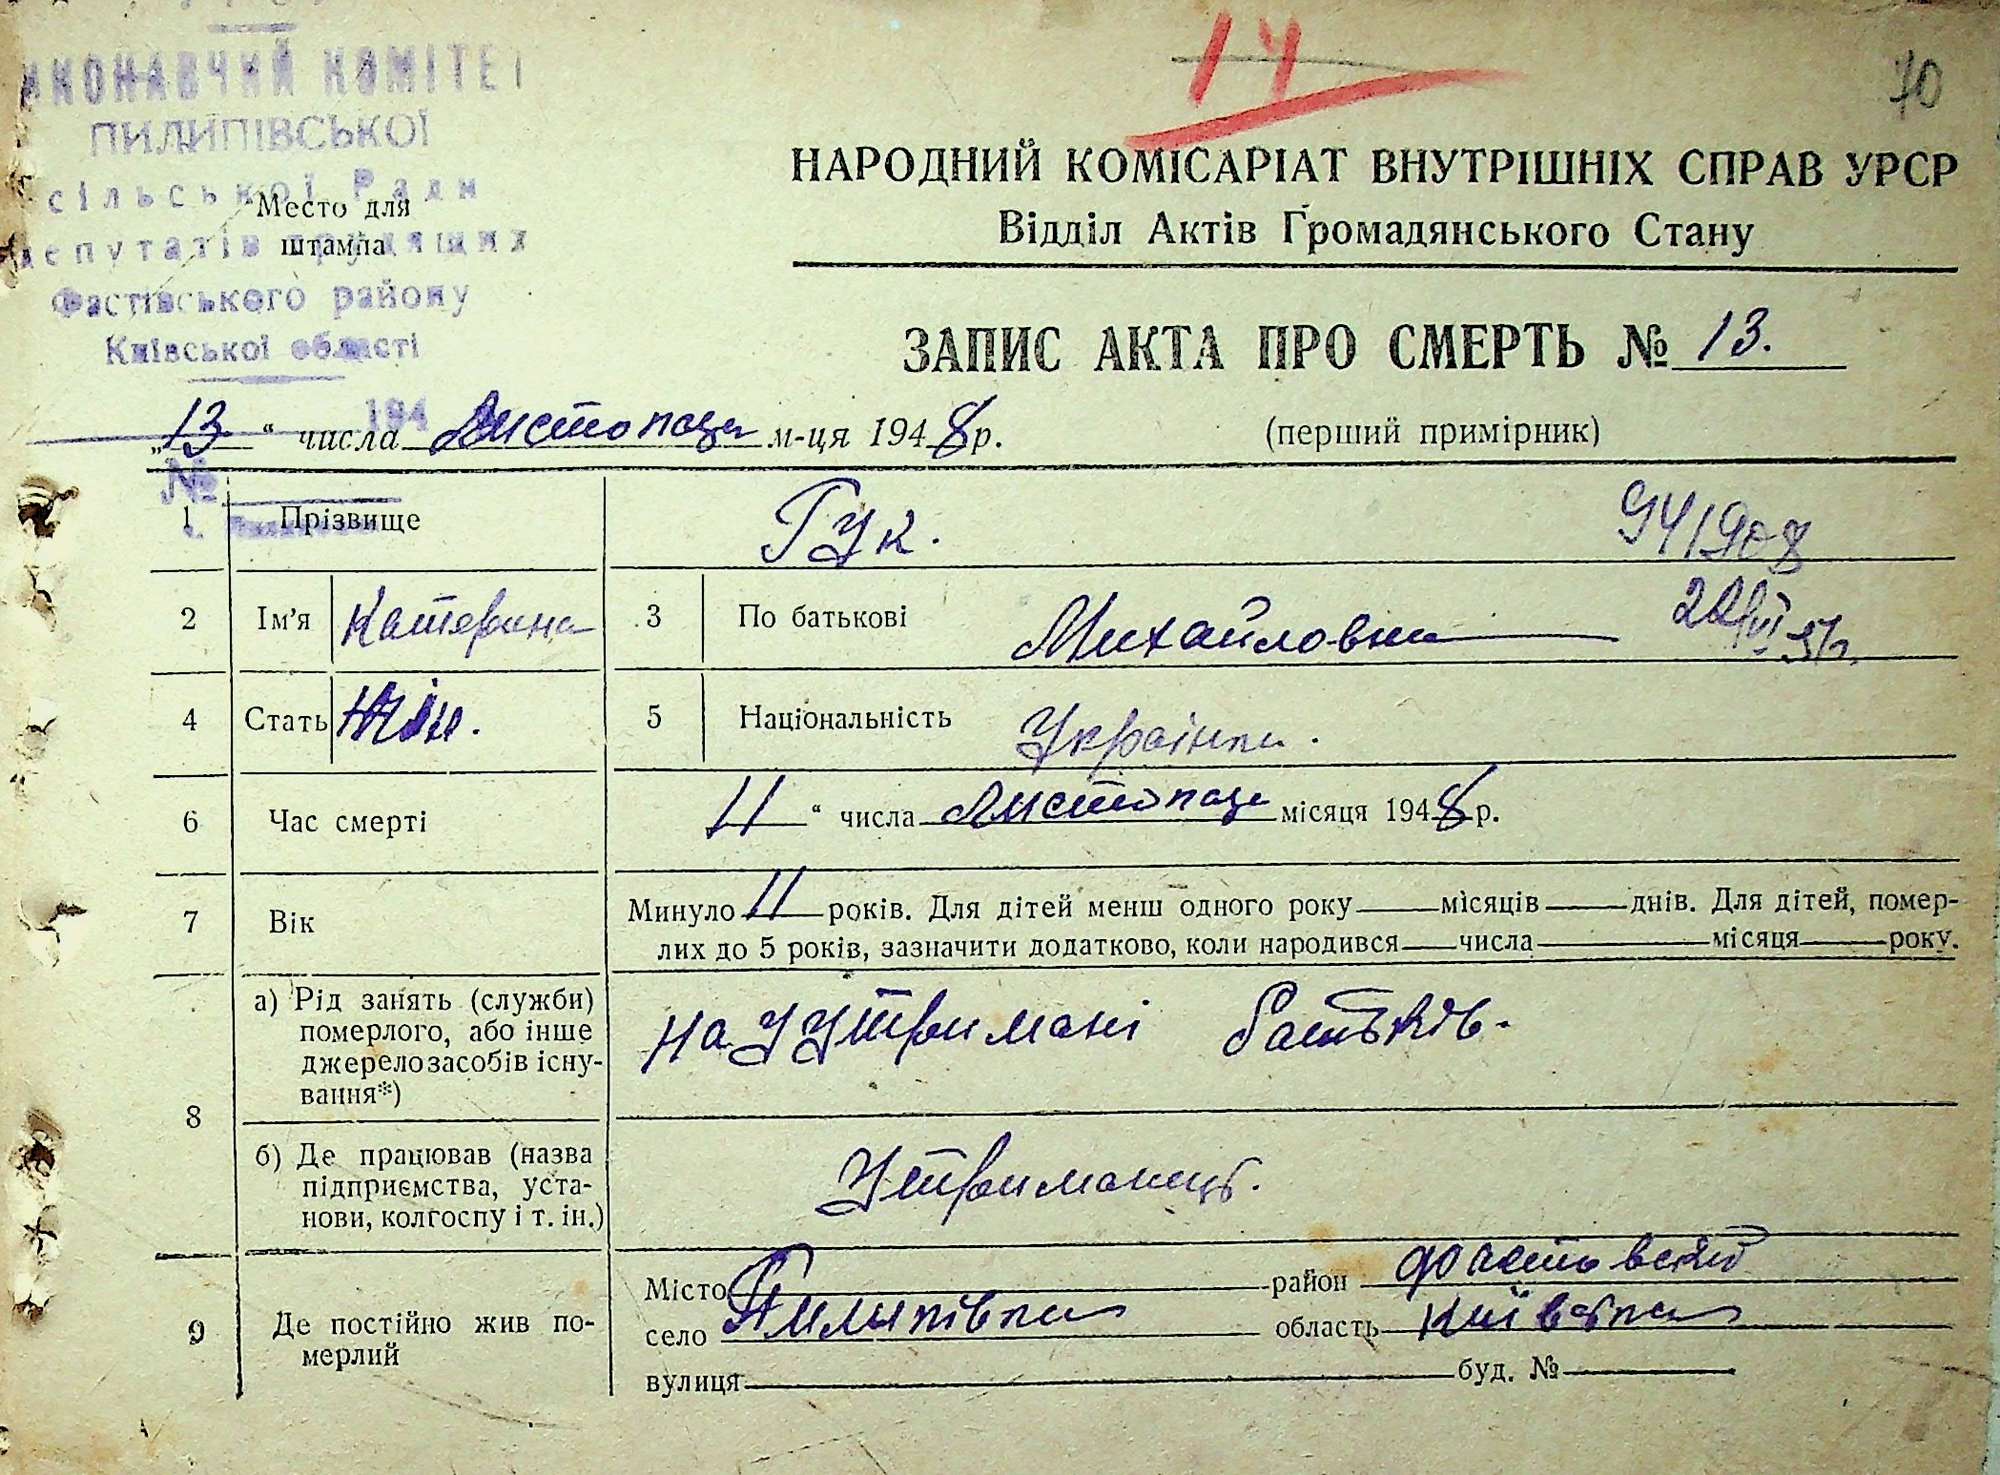 14
70
ВИКОНАВЧИЙ КОМІТЕТ
ПИЛИПІВСЬКОЇ
сільської Ради
депутатів трудящих
Фастівського району
Київської області
194
№
Место для
штампа
НАРОДНИЙ КОМІСАРІАТ ВНУТРІШНІХ СПРАВ УРСР
Відділ Актів Громадянського Стану
ЗАПИС АКТА ПРО СМЕРТЬ № 13.
„13“ числа Листопада м-ця 1948 р.
(перший примірник)
1 Прізвище Гук.
2 Ім'я Катерина 3 По батькові Михайловна
4 Стать жін. 5 Національність Українка.
6 Час смерті 11 “ числа Листопада місяця 1948 р.
7 Вік Минуло 11 років. Для дітей менш одного року місяців днів. Для дітей, помер-
лих до 5 років, зазначити додатково, коли народився числа місяця року.
8 а) Рід занять (служби)
померлого, або інше
джерело засобів існу-
вання*)
на утримані батьків.
б) Де працював (назва
підприємства, уста-
нови, колгоспу і т. ін.)
Утриманець.
9 Де постійно жив по-
мерлий
Місто район Фастовский
село Пилипівка область Київська
вулиця буд. №